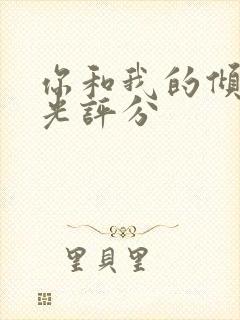 你和我的傾
光評分
里貝里